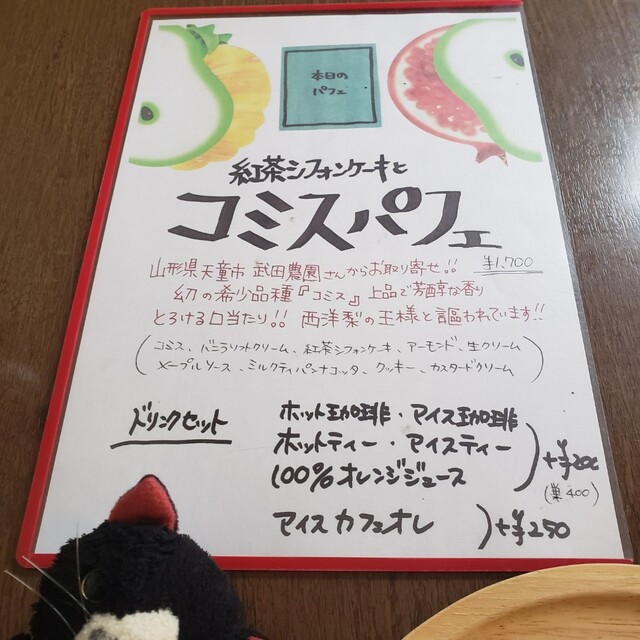 本日の
パフェ
紅茶シフォンケーキと
コミスパフェ
¥1,700
山形県天童市 武田農園さんからお取り寄せ!!
幻の希少品種『コミス』上品で芳醇な香り
とろける口当たり!! 西洋梨の王様と謳われています!!
(コミス、バニラソフトクリーム、紅茶シフォンケーキ、アーモンド、生クリーム
メープルソース、ミルクティパンナコッタ、クッキー、カスタードクリーム)
ドリンクセット
ホット珈琲・アイス珈琲
ホットティー・アイスティー
100%オレンジジュース
)+¥200
(単400)
アイスカフェオレ )+¥250